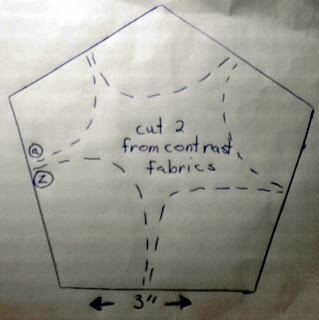 cut 2
from contrast
fabrics
a
z
3"